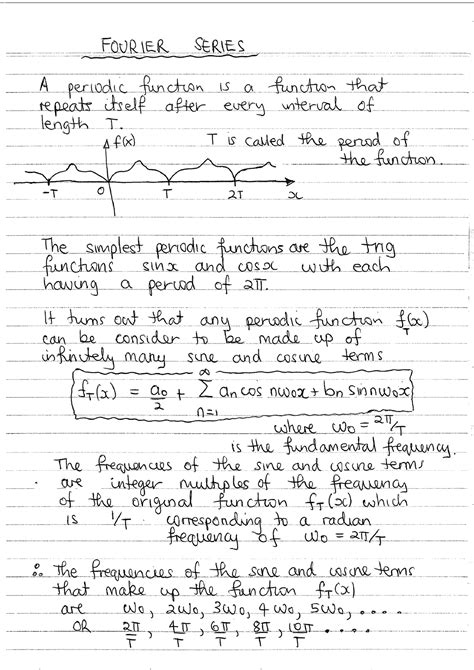 FOURIER SERIES
A periodic function is a function that
repeats itself after every interval of
length T.
f(x)
T is called the period of
the function.
-T O T 2T x
The simplest periodic functions are the trig
functions sinx and cosx with each
having a period of 2π.
It turns out that any periodic function f_T(x)
can be consider to be made up of
infinitely many sine and cosine terms
f_T(x) = a₀/2 + ∑_{n=1}^{∞} aₙ cos nω₀x + bₙ sin nω₀x
where ω₀ = 2π/T
is the fundamental frequency.
The frequencies of the sine and cosine terms
are integer multiples of the frequency
of the original function f_T(x) which
is 1/T corresponding to a radian
frequency of ω₀ = 2π/T
∴ The frequencies of the sine and cosine terms
that make up the function f_T(x)
are ω₀, 2ω₀, 3ω₀, 4ω₀, 5ω₀, ....
OR 2π/T, 4π/T, 6π/T, 8π/T, 10π/T ....